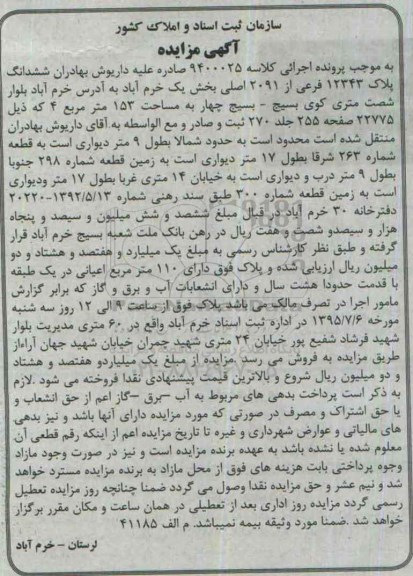 سازمان ثبت اسناد و املاک کشور
آگهی مزایده
به موجب پرونده اجرائی کلاسه ۹۴۰۰۰۲۵ صادره علیه داریوش بهادران ششدانگ
پلاک ۱۲۳۴۳ فرعی از ۳۰۹۱ اصلی بخش یک خرم آباد به آدرس خرم آباد بلوار
شصت متری کوی بسیج - بسیج چهار به مساحت ۱۵۳ متر مربع ۴ که ذیل
۲۲۷۷۵ صفحه ۲۵۵ جلد ۲۷۰ ثبت و صادر و مع الواسطه به آقای داریوش بهادران
منتقل شده است محدود است به حدود شمالا بطول ۹ متر دیواری است به قطعه
شماره ۲۶۳ شرقا بطول ۱۷ متر دیواری است به زمین قطعه شماره ۲۹۸ جنوبا
بطول ۹ متر درب و دیواری است به خیابان ۱۴ متری غربا بطول ۱۷ متر ودیواری
است به زمین قطعه شماره ۳۰۰ طبق سند رهنی شماره ۱۳۹۲/۵/۱۳-۲۰۲۲۰
دفترخانه ۳۰ خرم آباد در قبال مبلغ ششصد و شش میلیون و سیصد و پنجاه
هزار و سیصدو شصت و هفت ریال در رهن بانک ملت شعبه بسیج خرم آباد قرار
گرفته و طبق نظر کارشناس رسمی به مبلغ یک میلیارد و هفتصد و هشتاد و دو
میلیون ریال ارزیابی شده و پلاک فوق دارای ۱۱۰ متر مربع اعیانی در یک طبقه
با قدمت حدودا هشت سال و دارای انشعابات آب و برق و گاز که برابر گزارش
مامور اجرا در تصرف مالک می باشد پلاک فوق از ساعت ۹ الی ۱۲ روز سه شنبه
مورخه ۱۳۹۵/۷/۶ در اداره ثبت اسناد خرم آباد واقع در ۶۰ متری مدیریت بلوار
شهید فرشاد شفیع پور خیابان ۲۴ متری شهید چمران خیابان شهید جهان آرااز
طریق مزایده به فروش می رسد .مزایده از مبلغ یک میلیاردو هفتصد و هشتاد
و دو میلیون ریال شروع و بالاترین قیمت پیشنهادی نقدا فروخته می شود .لازم
به ذکر است پرداخت بدهی های مربوط به آب –برق –گاز اعم از حق انشعاب و
یا حق اشتراک و مصرف در صورتی که مورد مزایده دارای آنها باشد و نیز بدهی
های مالیاتی و عوارض شهرداری و غیره تا تاریخ مزایده اعم از اینکه رقم قطعی آن
معلوم شده یا نشده باشد به عهده برنده مزایده است و نیز در صورت وجود مازاد
وجوه پرداختی بابت هزینه های فوق از محل مازاد به برنده مزایده مسترد خواهد
شد و نیم عشر و حق مزایده نقدا وصول می گردد ضمنا چنانچه روز مزایده تعطیل
رسمی گردد مزایده روز اداری بعد از تعطیلی در همان ساعت و مکان مقرر برگزار
خواهد شد .ضمنا مورد وثیقه بیمه نمیباشد. م الف ۴۱۱۸۵
لرستان – خرم آباد